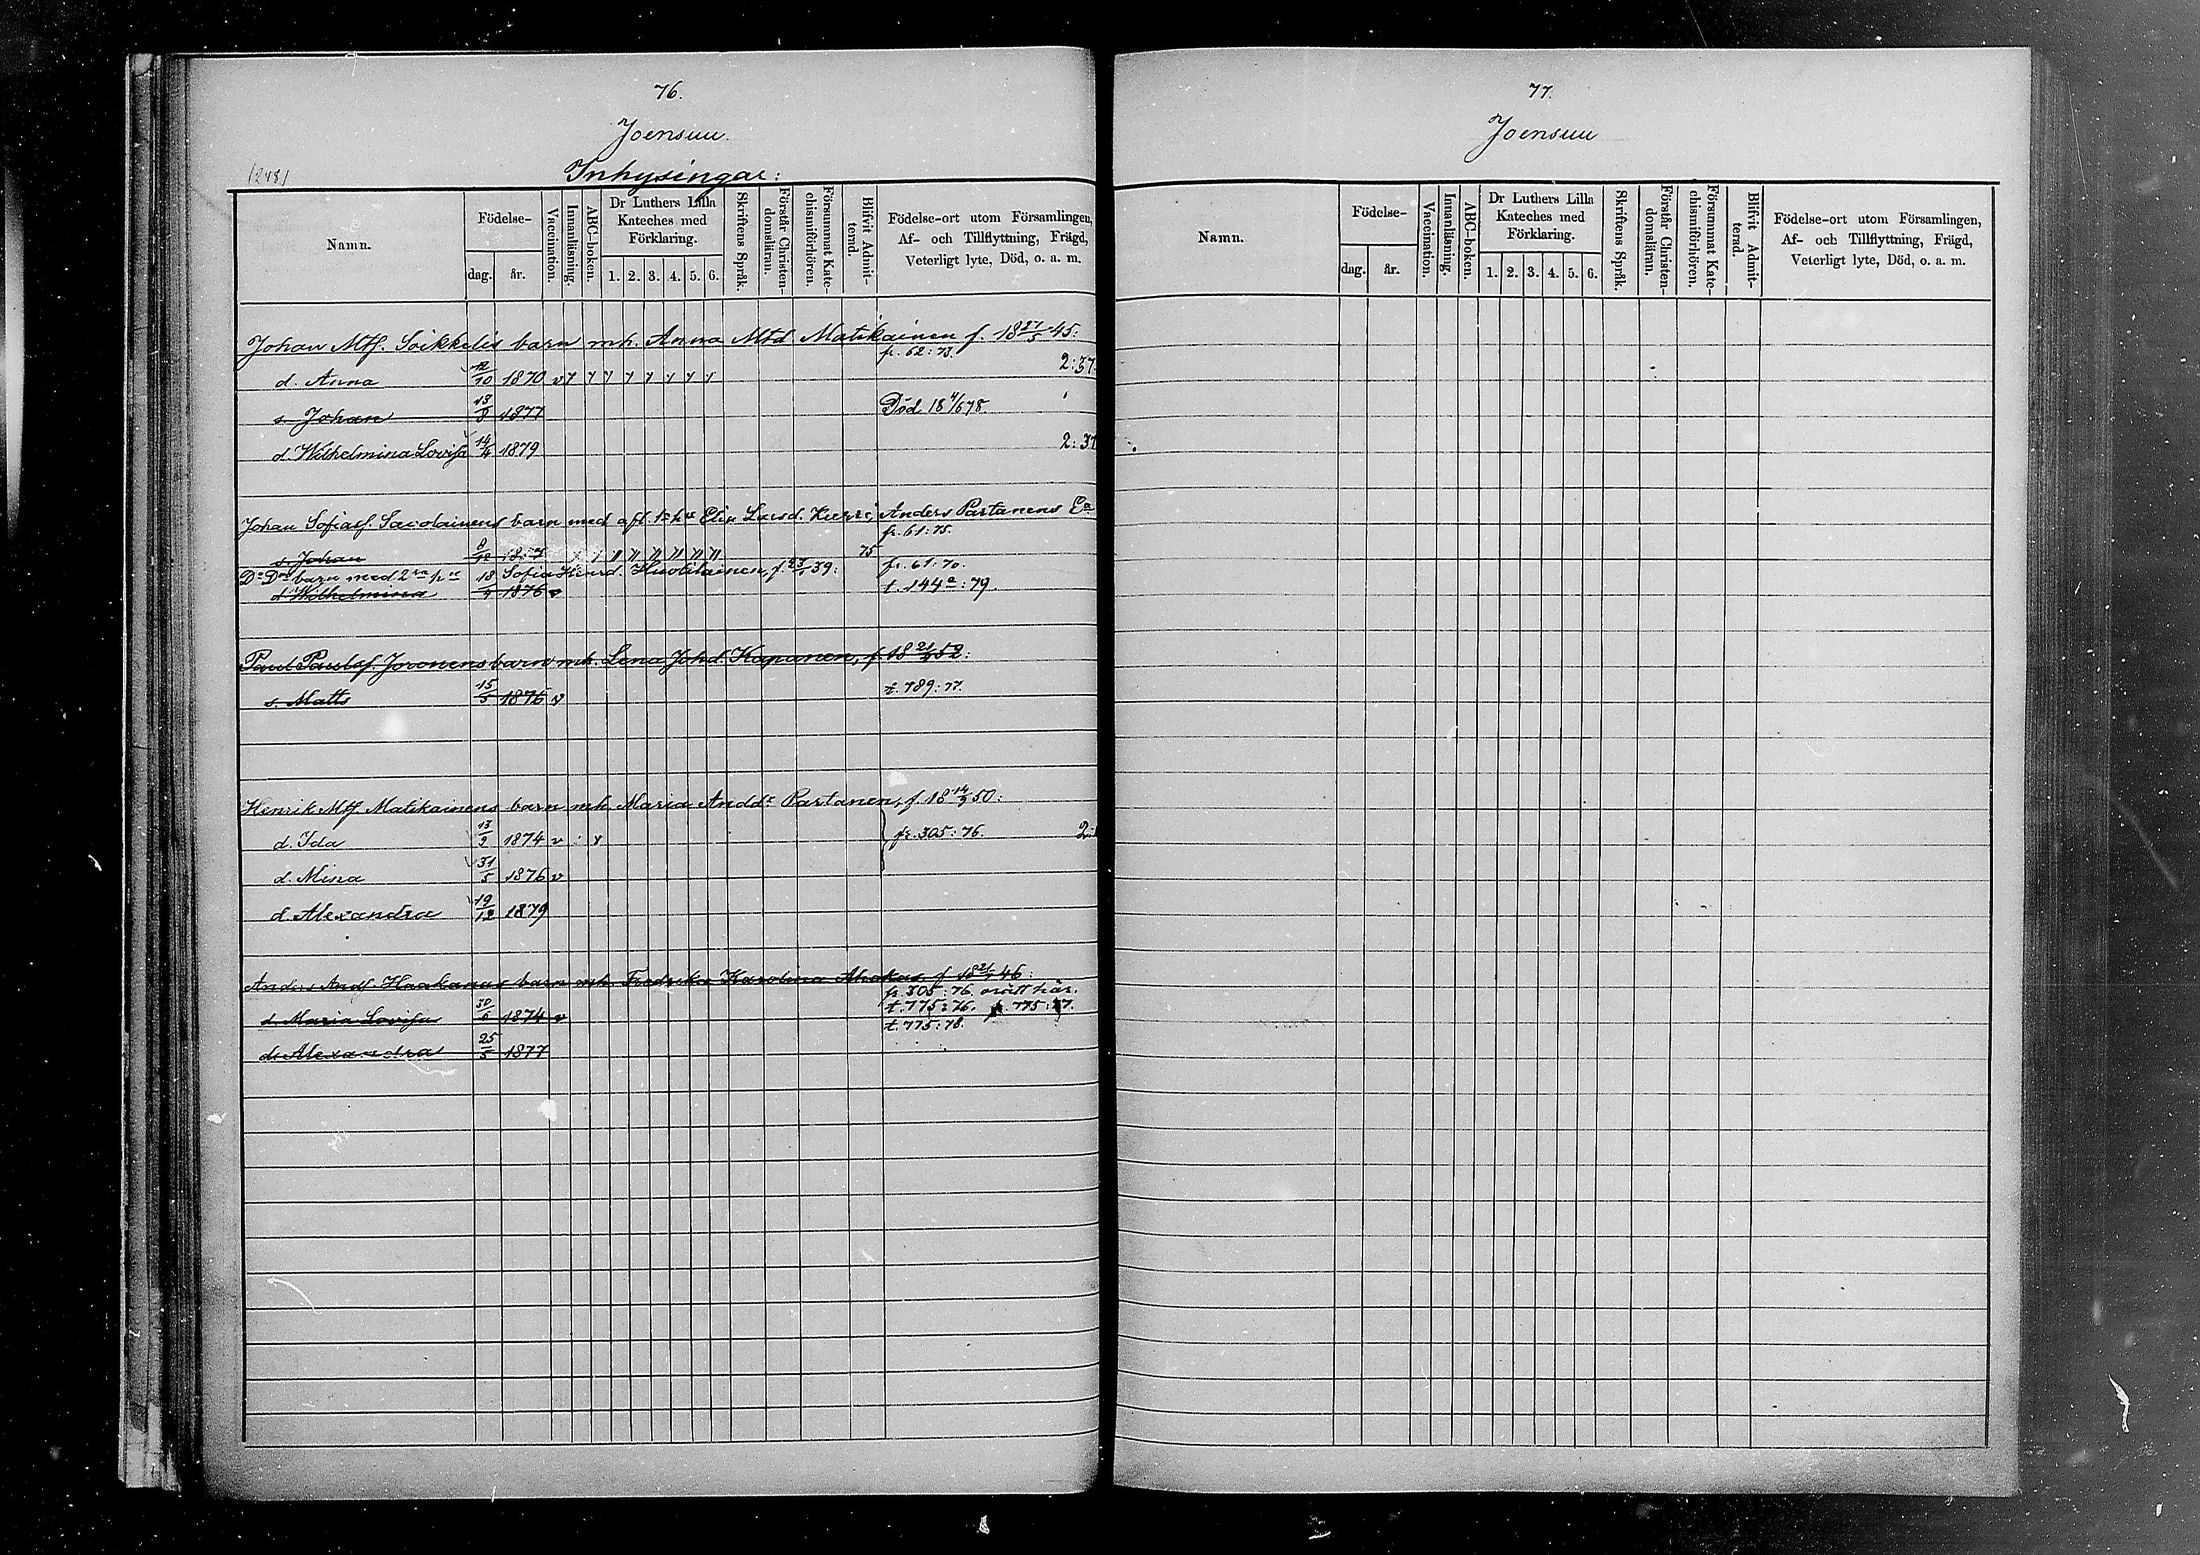 76.
Joensuu.
Inhysingar:
Namn.
Födelse-
dag.
år.
Vaccination.
Innanläsning.
ABC-boken.
Dr Luthers Lilla Kateches med Förklaring.
1. 2. 3. 4. 5. 6.
Skriftens Språk.
Förstår Christendomsläran.
Försummat Katechismiförhören.
Blifvit Admitterad.
Födelse-ort utom Församlingen,
Af- och Tillflyttning, Frägd,
Veterligt lyte, Död, o. a. m.
Johan Mtf. Soikkelis barn mh. Anna Mtd. Matikainen f. 18 27/5 45:
fr. 62:73.
d. Anna 12/10 1870 v y y y y y y y y 2:37.
s. Johan 13/9 1877 Död 18 4/6 78
d. Wilhelmina Lovisa 14/4 1879 2:37
Johan Sofiasf. barn med afl. Elin Larsd. Anders Partanens
fr. 61:75.
s. Johan 8/12 75
Do Dos barn med 2ra Sofia Huotilainen, f. 39: fr. 61:70.
d. Wilhelmina 18/4 1876 v t. 144a:79.
Paul Paulsf. Joronens barn mh. Lena Johd. Kapanen, f. 18 21/9 52:
s. Matts 15/5 1876 v t. 789:77.
Henrik Mtf. Matikainens barn mh. Maria Andd. Partanen, f. 18 14/9 50:
d. Ida 13/2 1874 v : y fr. 305:76.
d. Mina 31/5 1876 v
d. Alexandra 19/12 1879
Anders Andf. Haakanas barn mh. Fredrika Karolina Ahokas f. 46:
fr. 305:76 orätt här.
d. Maria Lovisa 30/6 1874 v t. 775:76. fr. 775:77.
t. 775:78.
d. Alexandra 25/5 1877
77.
Joensuu
Namn.
Födelse-
dag.
år.
Vaccination.
Innanläsning.
ABC-boken.
Dr Luthers Lilla Kateches med Förklaring.
1. 2. 3. 4. 5. 6.
Skriftens Språk.
Förstår Christendomsläran.
Försummat Katechismiförhören.
Blifvit Admitterad.
Födelse-ort utom Församlingen,
Af- och Tillflyttning, Frägd,
Veterligt lyte, Död, o. a. m.